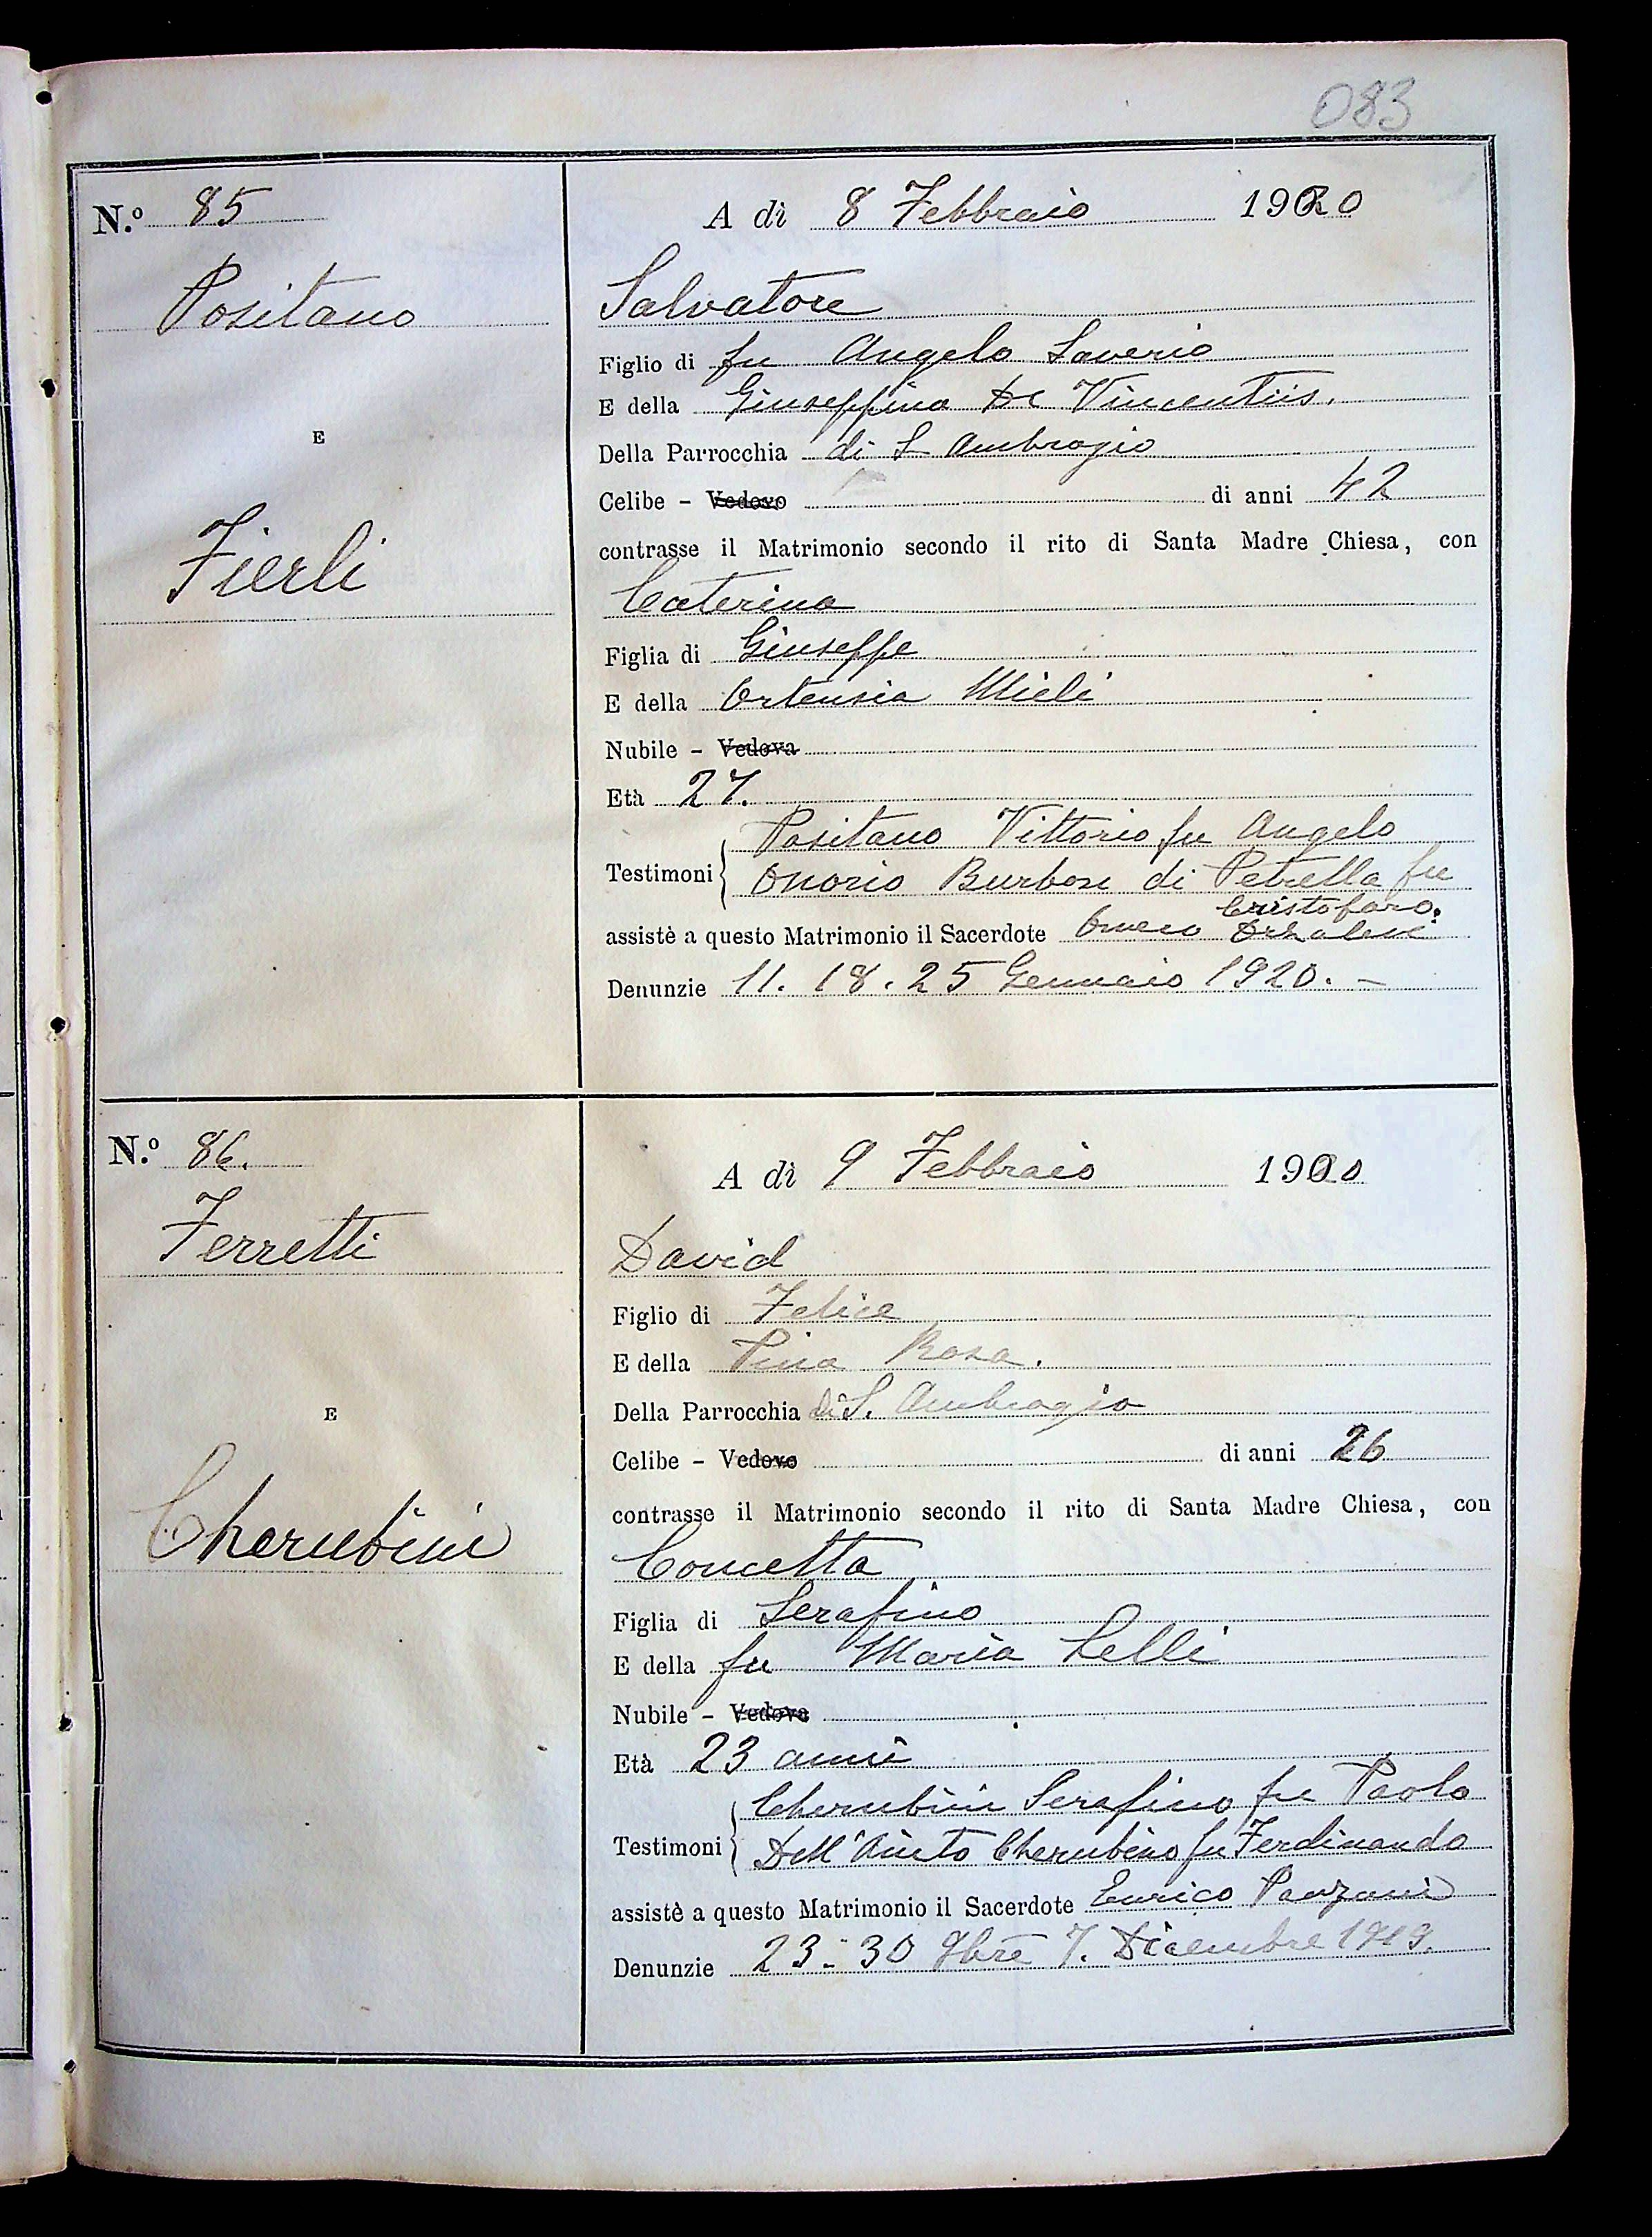 083
N.º 85
A dì 8 Febbraio 1920
Positano
E
Fierli
Salvatore
Figlio di fu Angelo Saverio
E della Giuseppina De Vincentiis.
Della Parrocchia di S Ambrogio
Celibe - Vedovo di anni 42
contrasse il Matrimonio secondo il rito di Santa Madre Chiesa, con
Caterina
Figlia di Giuseppe
E della Ortensia Mieli
Nubile - Vedova
Età 27.
Positano Vittorio fu Angelo
Testimoni Onorio Burbose di Petrella fu
Cristofaro.
assistè a questo Matrimonio il Sacerdote Omero Orzalesi
Denunzie 11. 18. 25 Gennaio 1920. -
N.º 86.
A dì 9 Febbraio 1920
Ferretti
E
Cherubini
David
Figlio di Felice
E della Pina Rosa.
Della Parrocchia di S. Ambrogio
Celibe - Vedovo di anni 26
contrasse il Matrimonio secondo il rito di Santa Madre Chiesa, con
Concetta
Figlia di Serafino
E della fu Maria Lelli
Nubile - Vedova
Età 23 anni
Cherubini Serafino fu Paolo
Testimoni Dell'Aiuto Cherubino fu Ferdinando
assistè a questo Matrimonio il Sacerdote Enrico Panzani
Denunzie 23 - 30 9bre 7. Dicembre 1919.